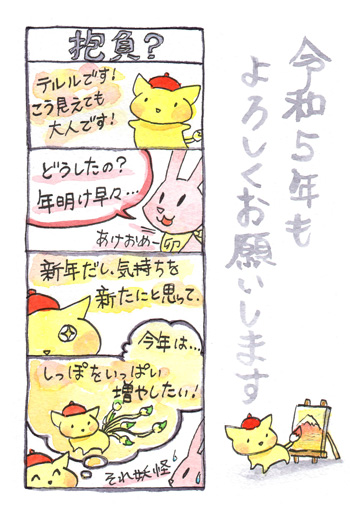 抱負？
テルルです！
こう見えても
大人です！
どうしたの？
年明け早々…
あけおめー
卯
新年だし、気持ちを
新たにと思って、
今年は…
しっぽをいっぱい
増やしたい！
それ妖怪
令和5年も
よろしくお願いします